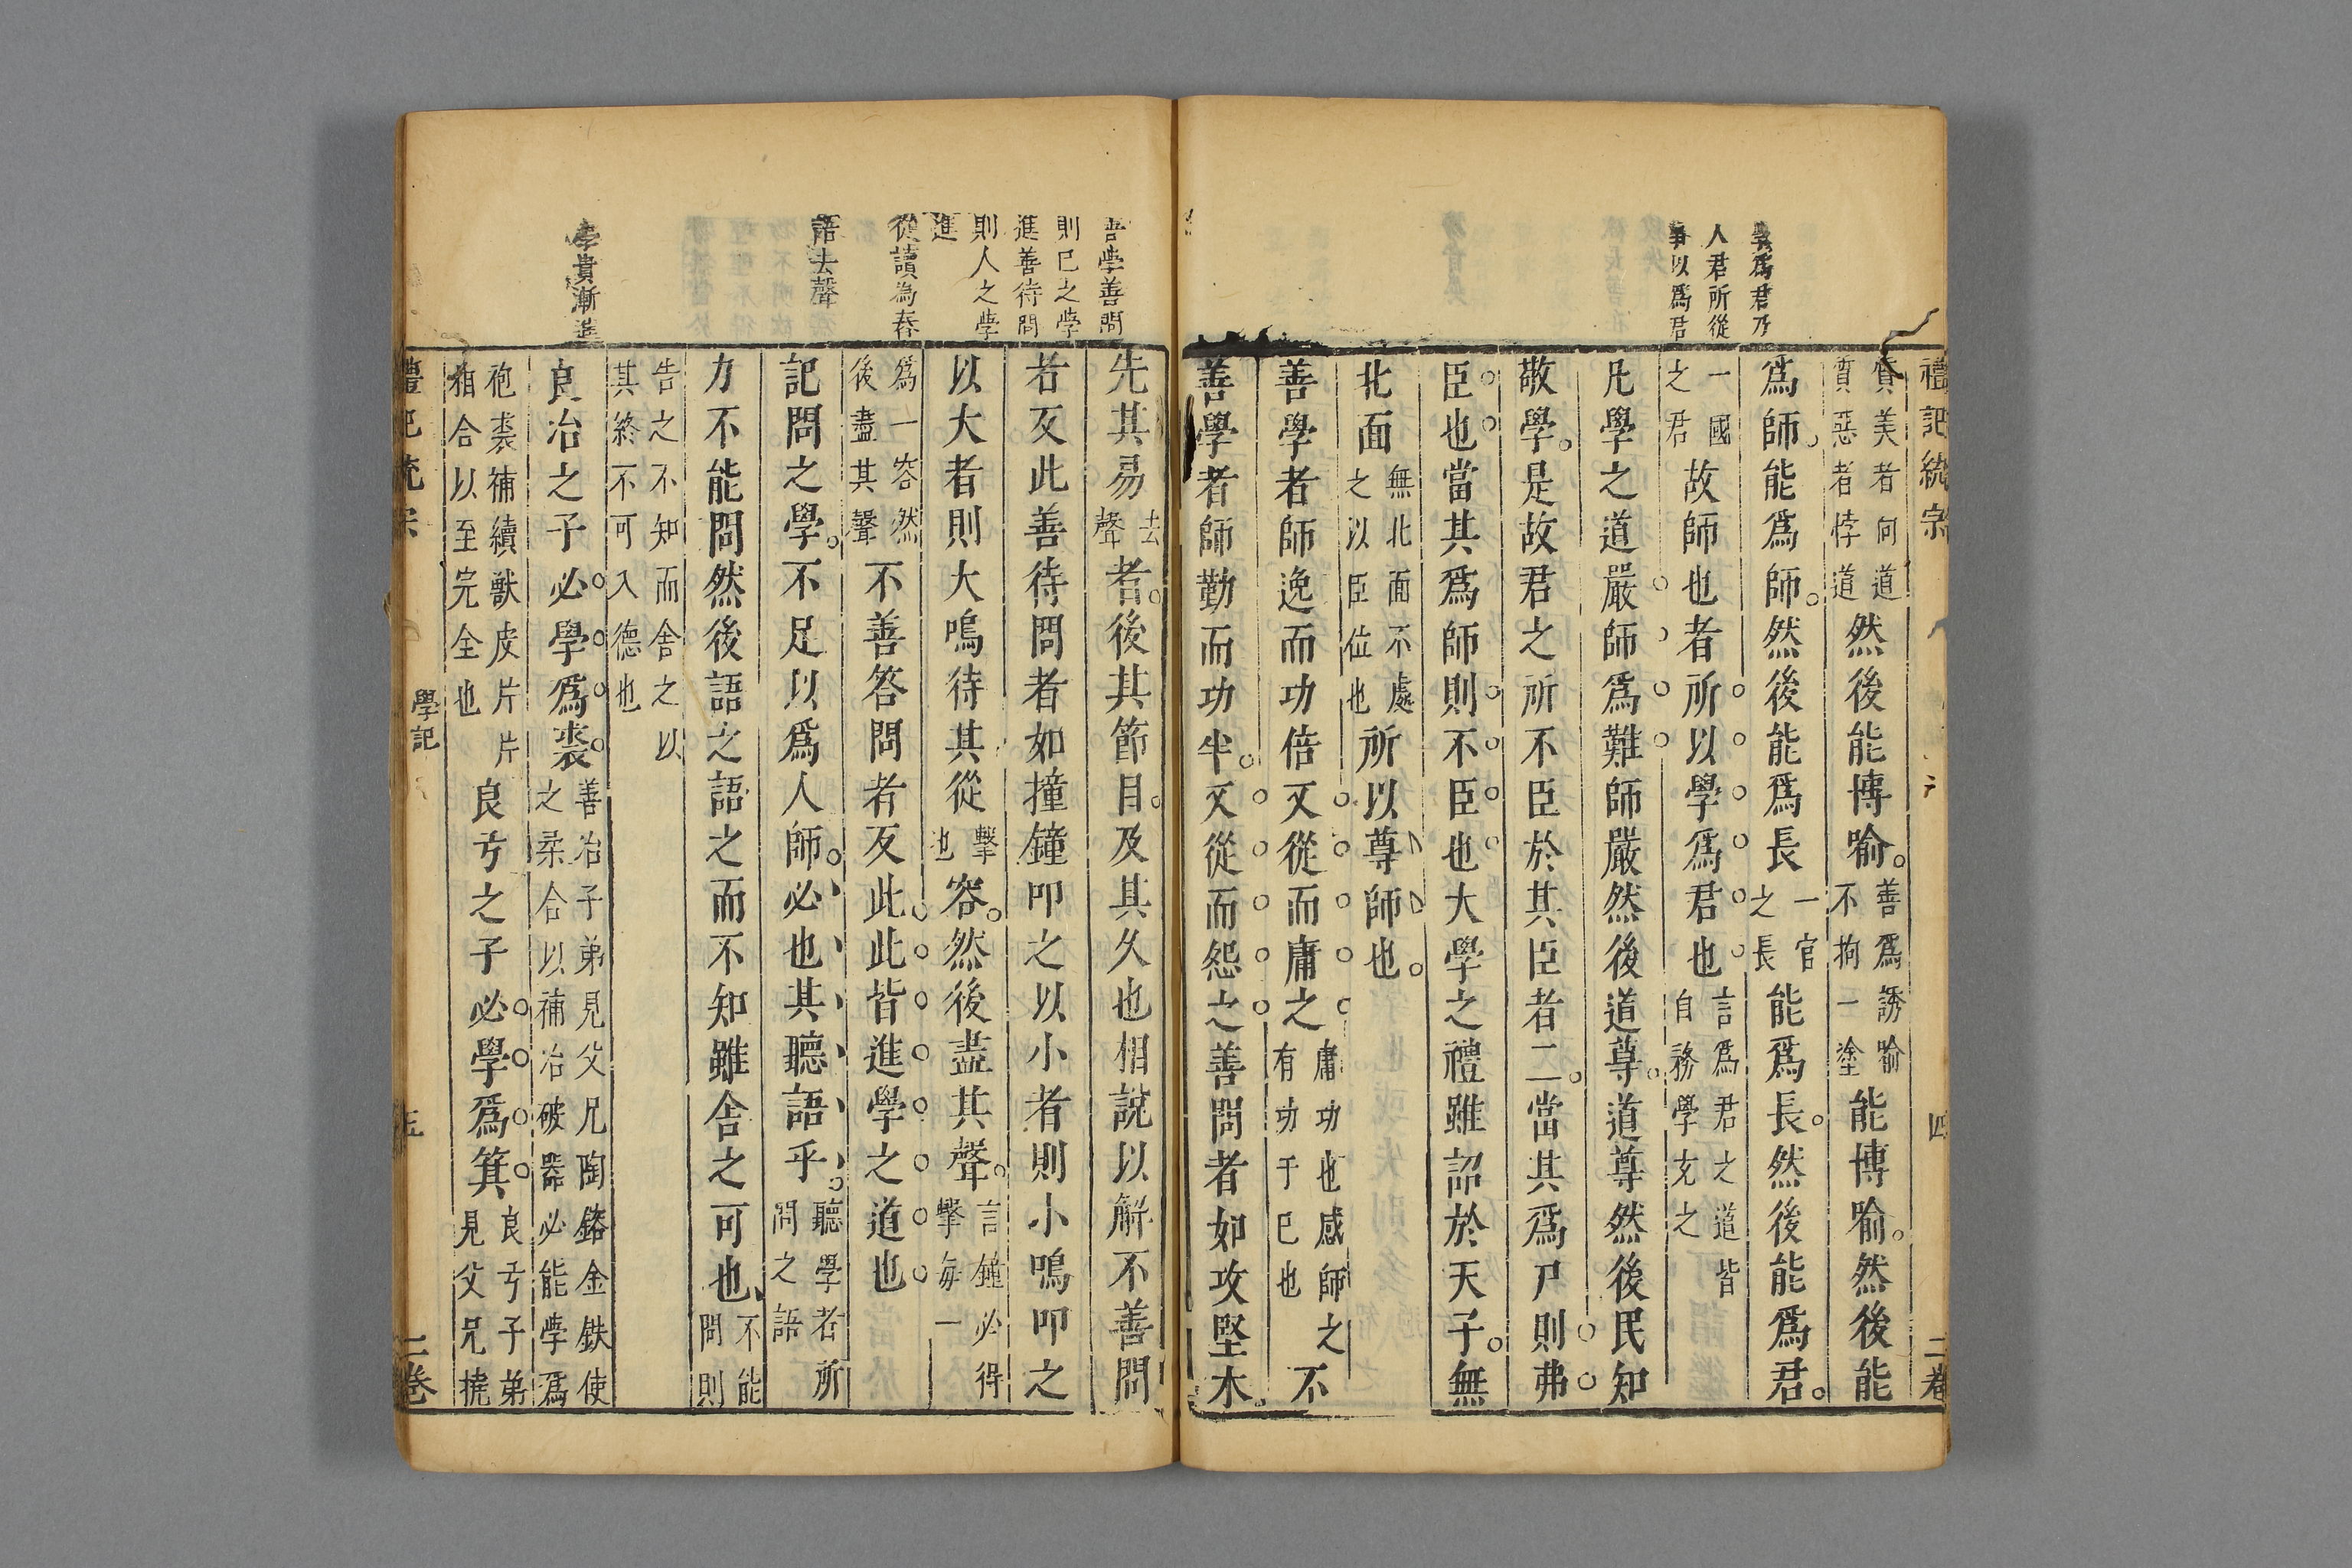 禮記統宗 四 二卷
學爲君乃
人君所從
事以爲君
質美者向道
質惡者悖道
然後能博喻
善爲誘喻
不拘一塗
能博喻然後能
爲師能爲師然後能爲長
一官
之長
能爲長然後能爲君
一國
之君
故師也者所以學爲君也
言爲君之道皆
自務學充之
凡學之道嚴師爲難師嚴然後道尊道尊然後民知
敬學是故君之所不臣於其臣者二當其爲尸則弗
臣也當其爲師則不臣也大學之禮雖詔於天子無
北面
無北面不處
之以臣位也
所以尊師也
善學者師逸而功倍又從而庸之
庸功也感師之
有功于已也
不
善學者師勤而功半又從而怨之善問者如攻堅木
吾學善問
則已之學
進善待問
則人之學
進
從讀為舂
語去聲
學貴漸進
先其易
去
聲
者後其節目及其久也相說以解不善問
者反此善待問者如撞鐘叩之以小者則小鳴叩之
以大者則大鳴待其從
擊
也
容然後盡其聲
言鐘必得
擊每一
爲一容然
後盡其聲
不善答問者反此此皆進學之道也
記問之學不足以爲人師必也其聽語乎
聽學者所
問之語
力不能問然後語之語之而不知雖舍之可也
不能
問則
告之不知而舍之以
其終不可入德也
良冶之子必學爲裘
善冶子弟見父兄陶鎔金鉄使
之柔合以補冶破器必能學爲
袍裘補續獸皮片片
相合以至完全也
良弓之子必學爲箕
良弓子弟
見父兄撓
禮記統宗 學記 五 二卷